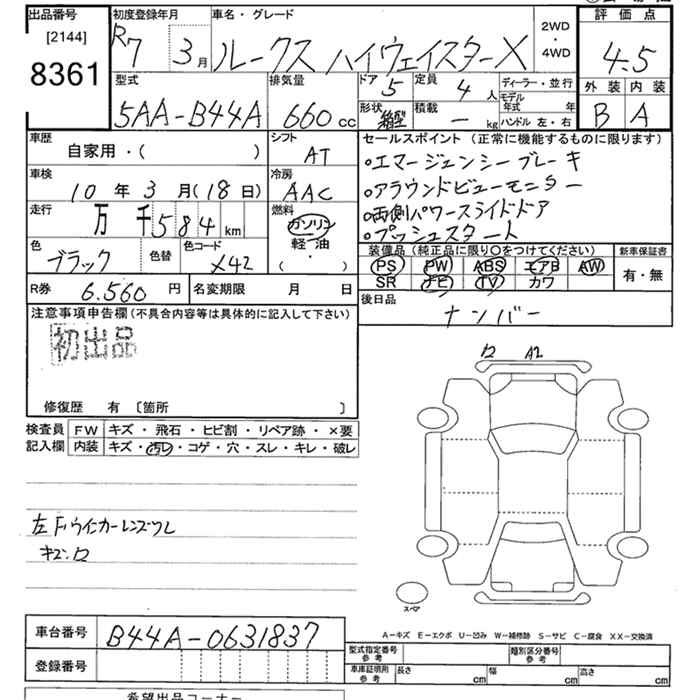 出品番号 初度登録年月 車名・グレード 2WD・4WD 評価点
[2144] R7 3月 ルークス ハイウェイスターX 4.5
8361
型式 排気量 ドア 5 定員 4人 ディーラー・並行 外装 内装
5AA-B44A 660cc 形状 箱型 積載 - kg モデル年式 年 ハンドル 左・右 B A
車歴 シフト セールスポイント (正常に機能するものに限ります)
自家用・( ) AT ・エマージェンシーブレーキ
車検 冷房 ・アラウンドビューモニター
10年3月(18日) AAC ・両側パワースライドドア
走行 燃料 ・プッシュスタート
万 千584km ガソリン 軽油・( )
色 色替 色コード 装備品(純正品に限り○をつけてください) 新車保証書
ブラック X42 PS PW ABS エアB AW 有・無
SR ナビ TV カワ
R券 6.560円 名変期限 月 日 後日品
ナンバー
注意事項申告欄(不具合内容等は具体的に記入して下さい)
初出品
修復歴 有 〔箇所 〕
A2
検査員記入欄 FW キズ・飛石・ヒビ割・リペア跡・×要
内装 キズ・汚レ・コゲ・穴・スレ・キレ・破レ
左Fウインカーレンズワレ
スペア
A-キズ E-エクボ U-凹み W-補修跡 S-サビ C-腐食 XX-交換済
車台番号 B44A-0631837
登録番号
型式指定番号 参考 類別区分番号 参考
車庫証明所 参考 長さ cm 幅 cm 高さ cm
希望出品コーナー